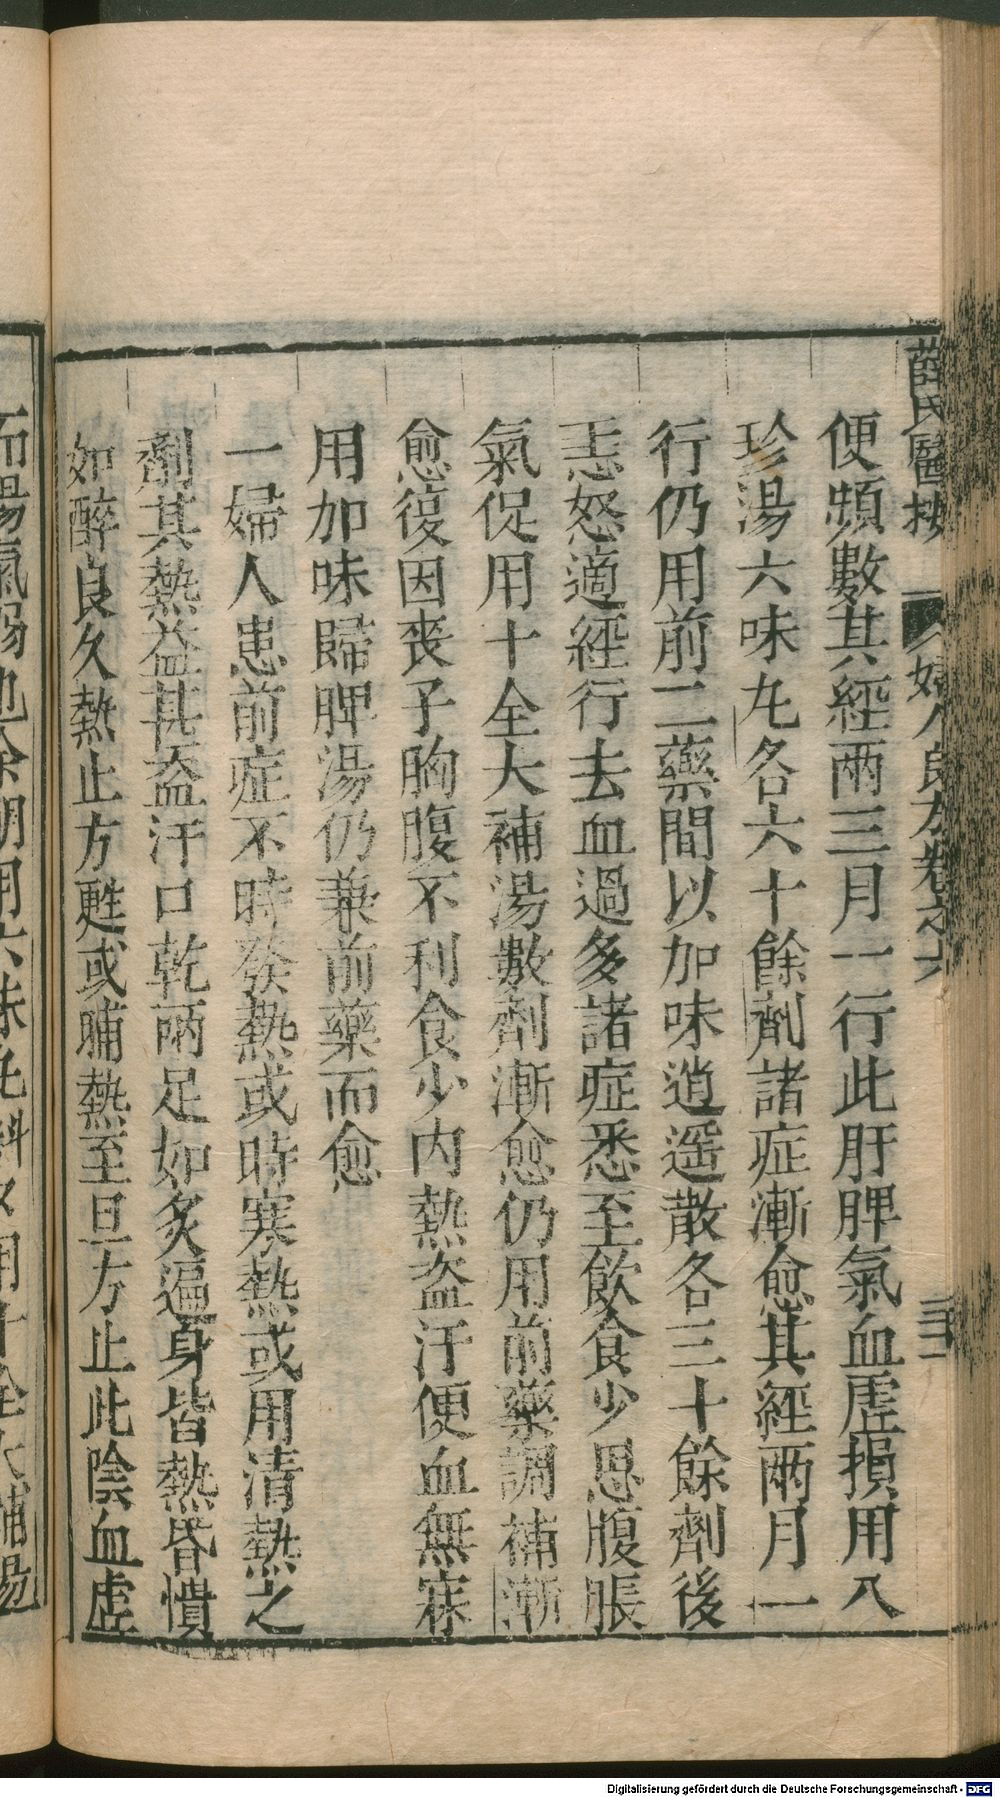 薛氏醫按　婦人良方卷之六　三十一
便頻數其經兩三月一行此肝脾氣血虛損用八
珍湯六味丸各六十餘劑諸症漸愈其經兩月一
行仍用前二藥間以加味逍遥散各三十餘劑後
恚怒適經行去血過多諸症悉至飲食少思腹脹
氣促用十全大補湯數劑漸愈仍用前藥調補漸
愈復因丧子胸腹不利食少内熱盜汗便血無寐
用加味歸脾湯仍兼前藥而愈
一婦人患前症不時發熱或時寒熱或用清熱之
劑其熱益甚盜汗口乾兩足如炙遍身皆熱昏憒
如醉良久熱止方甦或晡熱至旦方止此陰血虛
而陽氣弱也余朝用六味丸料夕用十全大補湯
Digitalisierung gefördert durch die Deutsche Forschungsgemeinschaft - DFG